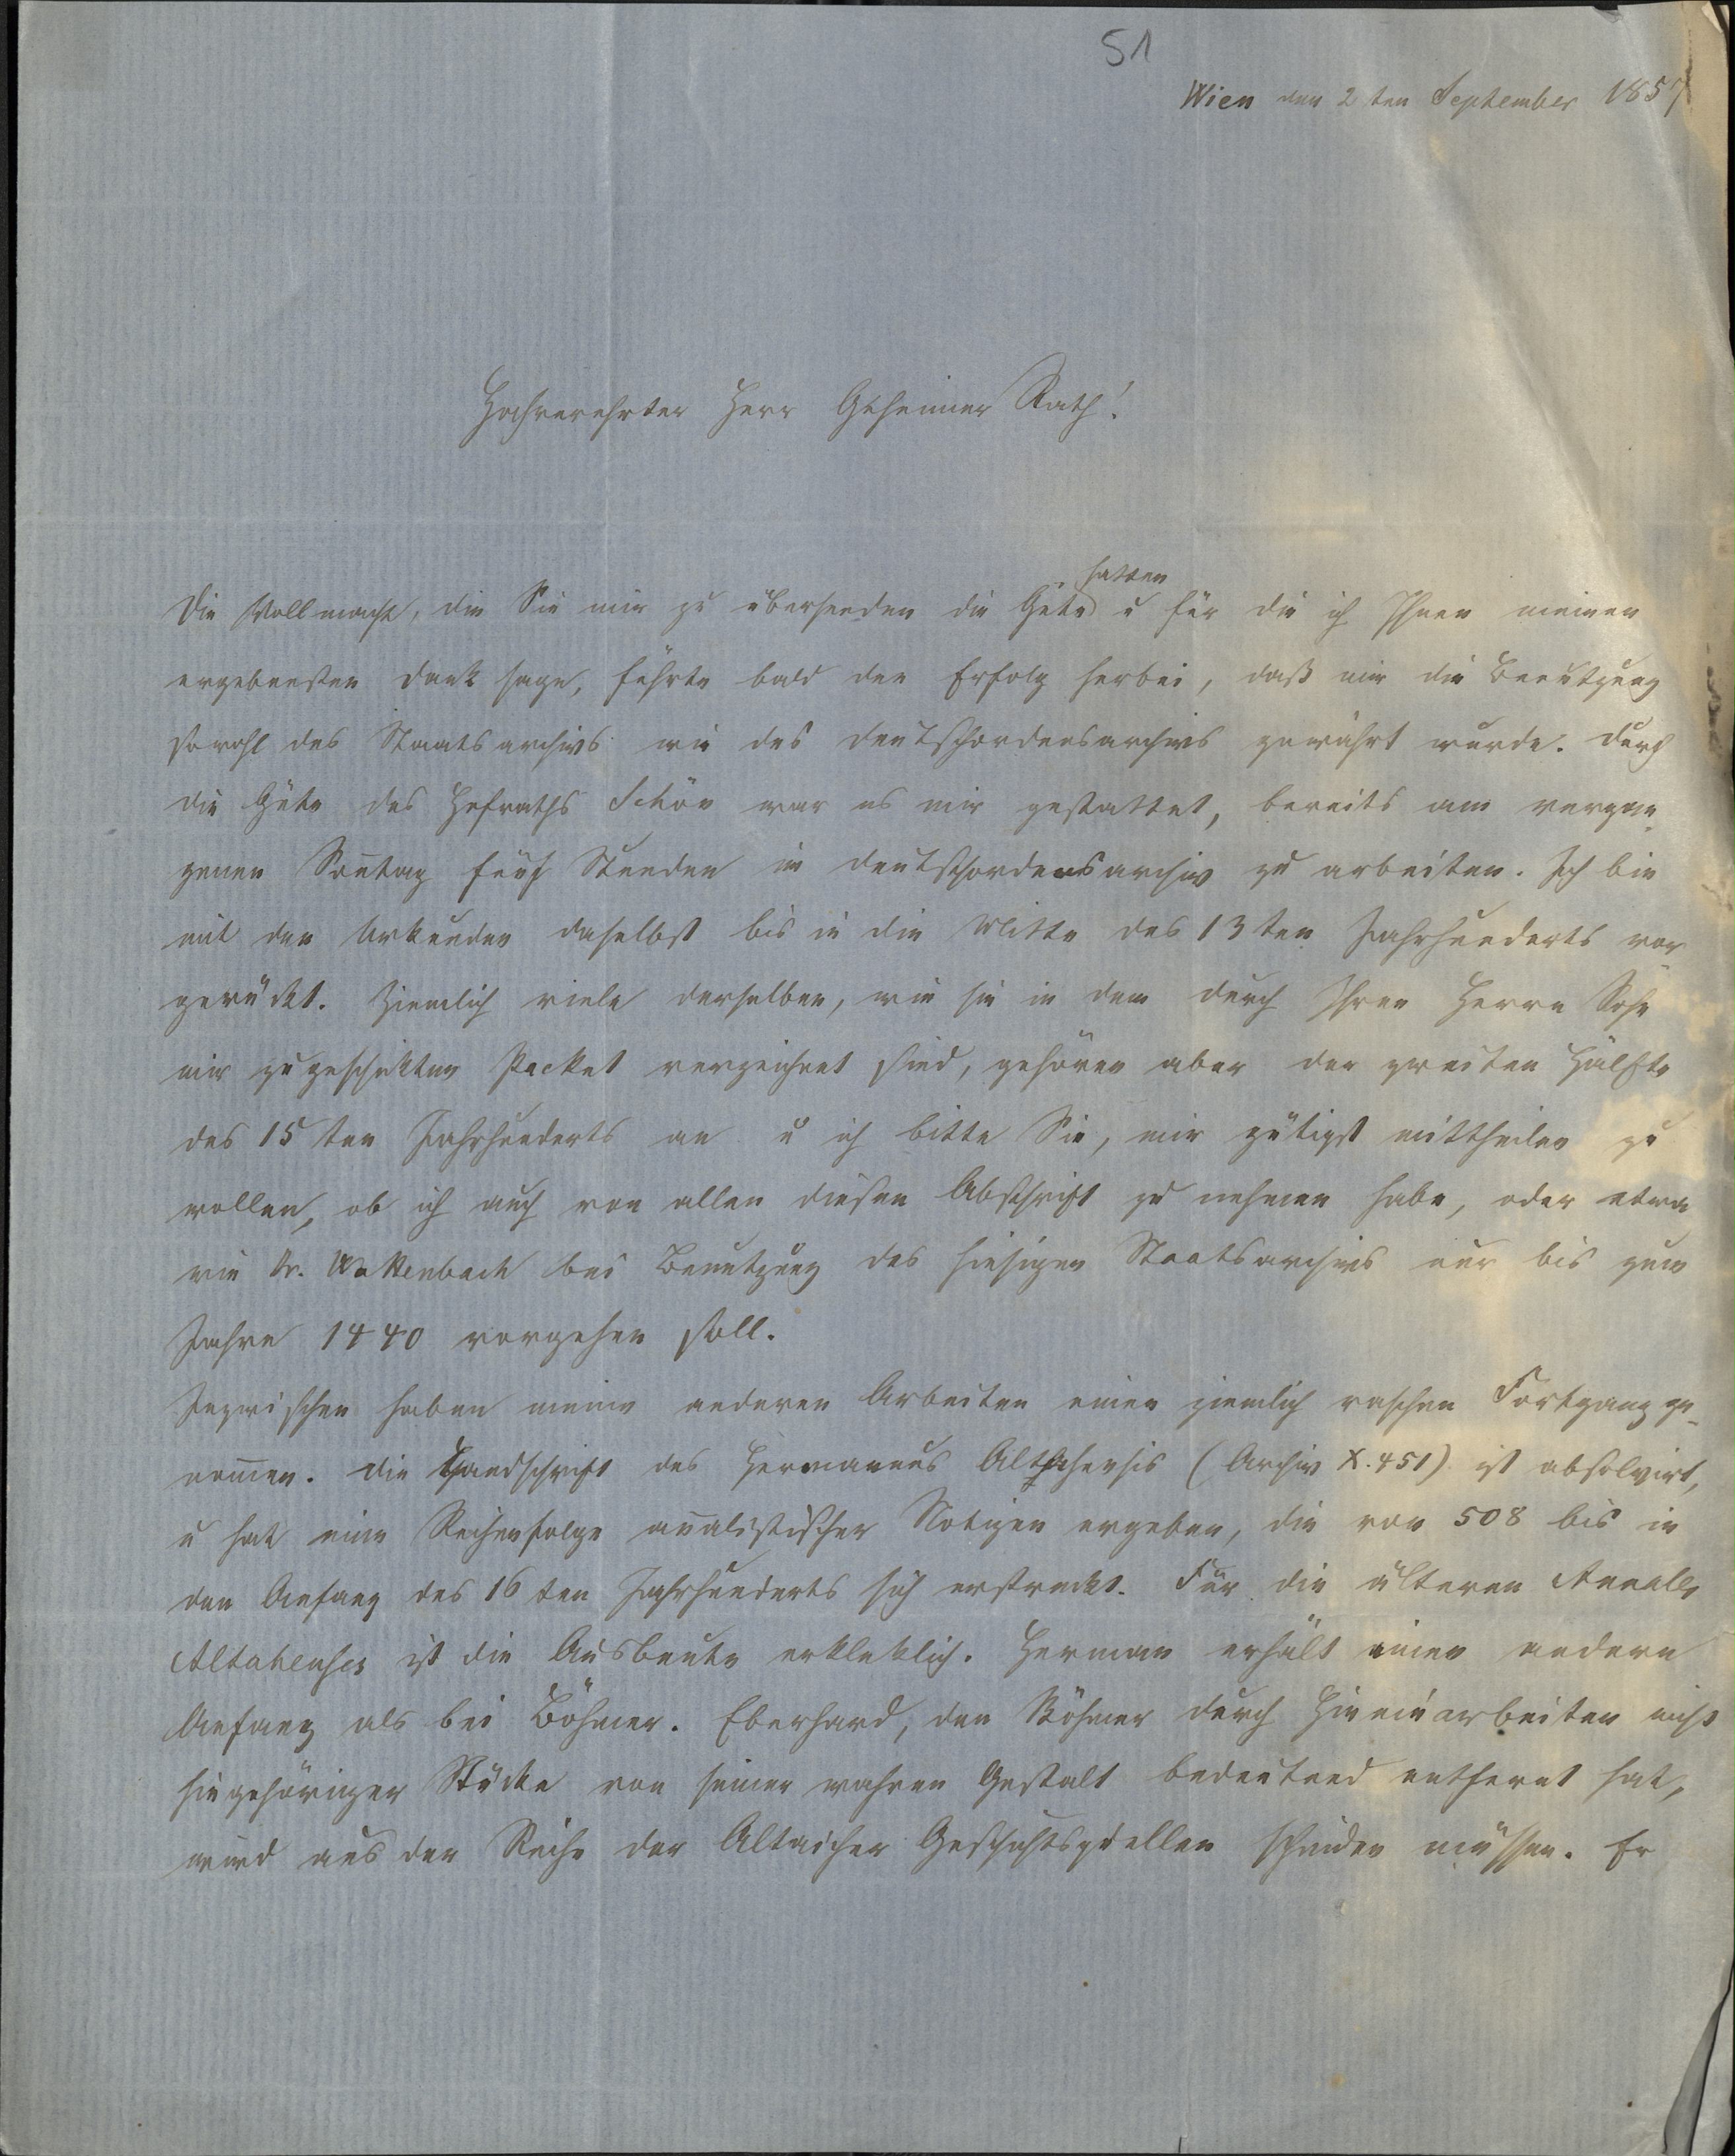 51
Wien den 2ten September 1857
Hochverehrter Herr Geheimer Rath!
hatten
Die Vollmacht, die Sie mir zu übersenden die Güte u für die ich Ihnen meinen
ergebensten Dank sage, führte bald den Erfolg herbei, daß mir die Benutzung
sowohl des Staatsarchivs wie des Deutschordensarchivs gewährt wurde. Durch
die Güte des Hofraths Schön war es mir gestattet, bereits am vergan-
genen Soñtag fünf Stunden im Deutschordensarchiv zu arbeiten. Ich bin
mit den Urkunden daselbst bis in die Mitte des 13ten Jahrhunderts vor
gerückt. Ziemlich viele derselben, wie sie in dem durch Ihren Herrn Sohn
mir zugeschikten Packet verzeichnet sind, gehören aber der zweiten Hälfte
des 15ten Jahrhunderts an u ich bitte Sie, mir gütigst mittheilen zu
wollen, ob ich auch von allen diesen Abschrift zu nehmen habe, oder etwa
wie Dr. Wattenbach bei Benutzung des hiesigen Staatsarchivs nur bis zum
Jahre 1440 vorgehen soll.
Inzwischen haben meine anderen Arbeiten einen ziemlich raschen Fortgang ge-
nom̄en. Die Handschrift des Hermannus Altahensis (Archiv X. 451) ist absolvirt,
u hat eine Reihenfolge añalistischer Notizen ergeben, die von 508 bis in
den Anfang des 16ten Jahrhunderts sich erstreckt. Für die älteren Annales
Altahenses ist die Ausbeute erkleklich. Herman erhält einen andern
Anfang als bei Böhmer. Eberhard, den Böhmer durch Hineinarbeiten nicht
hingehöriger Stücke von seiner wahren Gestalt bedeutend entfernt hat,
wird aus der Reihe der Altaicher Geschichtsquellen scheiden müssen. Er